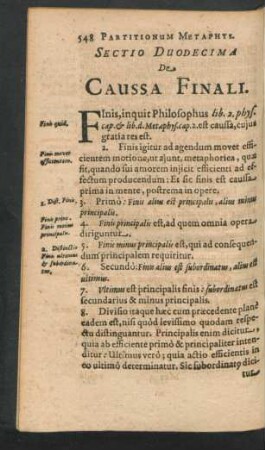 548 PARTITIONUM METAPHYS.
SECTIO DUODECIMA
De
CAUSSA FINALI.
Finis quid.
FInis, inquit Philosophus lib. 2. phys.
cap. & lib. d. Metaphys. cap. 2. est caussa, cujus
gratia res est.
Finis movet
efficientem.
2. Finis igitur ad agendum movet effi-
cientem motione, ut ajunt, metaphorica, qua
fit, quando sui amorem injicit efficienti ad ef-
fectum producendum: Et sic finis est caussa
prima in mente, postrema in opere.
1. Dist. Finis.
3. Primò: Finis alius est principalis, alius minus
principalis.
Finis princ.
Finis minus
principalis.
4. Finis principalis est, ad quem omnia opera
diriguntur.
5. Finis minus principalis est, qui ad consequen-
dum principalem requiritur.
2. Distinctio
Finis ultimus
& subordina-
tus.
6. Secundò: Finis alius est subordinatus, alius ul-
timus.
7. Ultimus est principalis finis: subordinatus est
secundarius & minus principalis.
8. Divisio itaque hæc cum præcedente planè
eadem est, nisi quòd levissimo quodam respe-
ctu distinguantur. Principalis enim dicitur,
quia ab efficiente primò & principaliter inten-
ditur: Ultimus verò; quia actio efficientis in
eo ultimò determinatur. Sic subordinato dici-
tur,